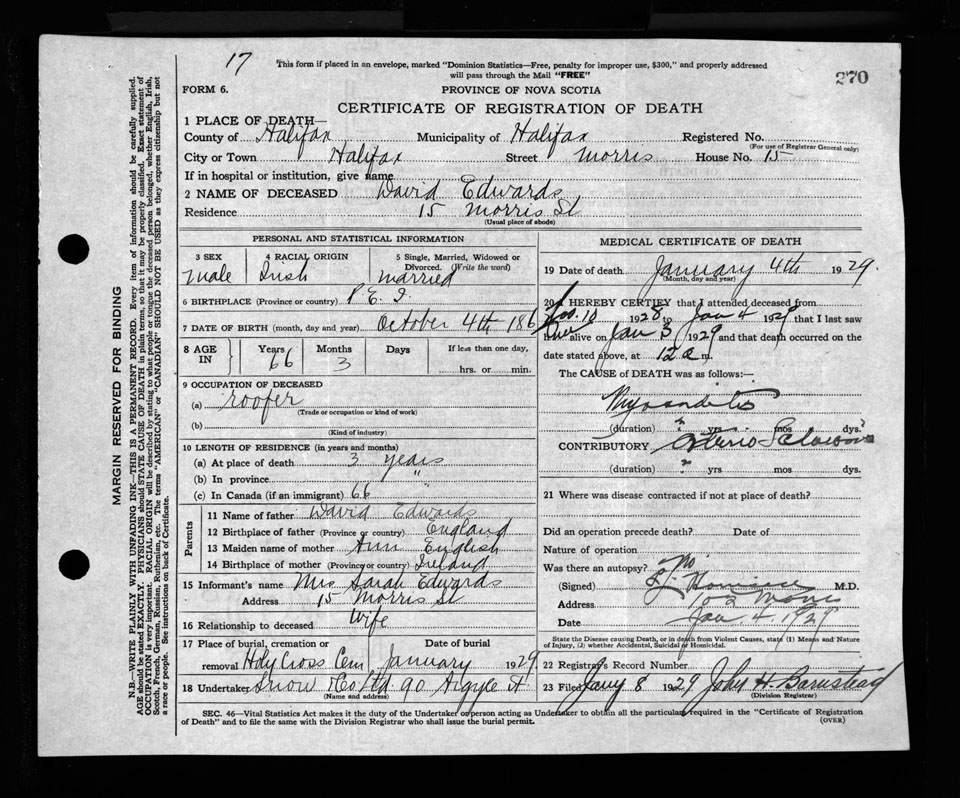 17
This form if placed in an envelope, marked "Dominion Statistics—Free, penalty for improper use, $300," and properly addressed
will pass through the Mail "FREE"
270
FORM 6.
PROVINCE OF NOVA SCOTIA
CERTIFICATE OF REGISTRATION OF DEATH
1 PLACE OF DEATH—
County of Halifax Municipality of Halifax Registered No.
(For use of Registrar General only)
City or Town Halifax Street Morris House No. 15
If in hospital or institution, give name
2 NAME OF DECEASED David Edwards
Residence 15 Morris St
(Usual place of abode)
PERSONAL AND STATISTICAL INFORMATION
3 SEX 4 RACIAL ORIGIN 5 Single, Married, Widowed or
Divorced. (Write the word)
Male Irish Married
6 BIRTHPLACE (Province or country) P E I
7 DATE OF BIRTH (month, day and year) October 4th 186
8 AGE IN Years Months Days If less than one day,
66 3 hrs. or min.
9 OCCUPATION OF DECEASED
(a) roofer
(Trade or occupation or kind of work)
(b)
(Kind of industry)
10 LENGTH OF RESIDENCE (in years and months)
(a) At place of death 3 years
(b) In province "
(c) In Canada (if an immigrant) 66 "
Parents
11 Name of father David Edwards
12 Birthplace of father (Province or country) England
13 Maiden name of mother Ann English
14 Birthplace of mother (Province or country) Ireland
15 Informant's name Mrs Sarah Edwards
Address 15 Morris St
16 Relationship to deceased Wife
17 Place of burial, cremation or Date of burial
removal Holy Cross Cem January 1929
18 Undertaker Snow Co Ltd 90 Argyle St
(Name and address)
MEDICAL CERTIFICATE OF DEATH
19 Date of death January 4th 1929.
(Month, day and year)
20 I HEREBY CERTIFY that I attended deceased from
Nov. 10 1928 to Jan 4 1929 that I last saw
him alive on Jan 3 1929 and that death occurred on the
date stated above, at 12 a m.
The CAUSE of DEATH was as follows:—
Myocarditis
(duration) ? yrs mos dys.
CONTRIBUTORY Arterio Sclerosis
(duration) ? yrs mos dys.
21 Where was disease contracted if not at place of death?
Did an operation precede death? Date of
Nature of operation
Was there an autopsy? No
(Signed) M.D.
Address
Date Jan 4. 1929
State the Disease causing Death, or in death from Violent Causes, state (1) Means and Nature
of Injury, (2) whether Accidental, Suicidal or Homicidal.
22 Registrar's Record Number
23 Filed Jany 8 1929 John H Barnstead
(Division Registrar)
SEC. 46—Vital Statistics Act makes it the duty of the Undertaker or person acting as Undertaker to obtain all the particulars required in the "Certificate of Registration
of Death" and to file the same with the Division Registrar who shall issue the burial permit.
(OVER)
MARGIN RESERVED FOR BINDING
N.B.—WRITE PLAINLY WITH UNFADING INK—THIS IS A PERMANENT RECORD. Every item of information should be carefully supplied.
AGE should be stated EXACTLY. PHYSICIANS should STATE CAUSE OF DEATH in plain terms, so that it may be properly classified. Exact statement of
OCCUPATION is very important. RACIAL ORIGIN will be described by stating to what people or tongue the deceased person belonged, whether English, Irish,
Scotch, French, German, Russian, Ruthenian, etc. The terms "AMERICAN" or "CANADIAN" SHOULD NOT BE USED as they express citizenship but not
a race or people. See instructions on back of Certificate.